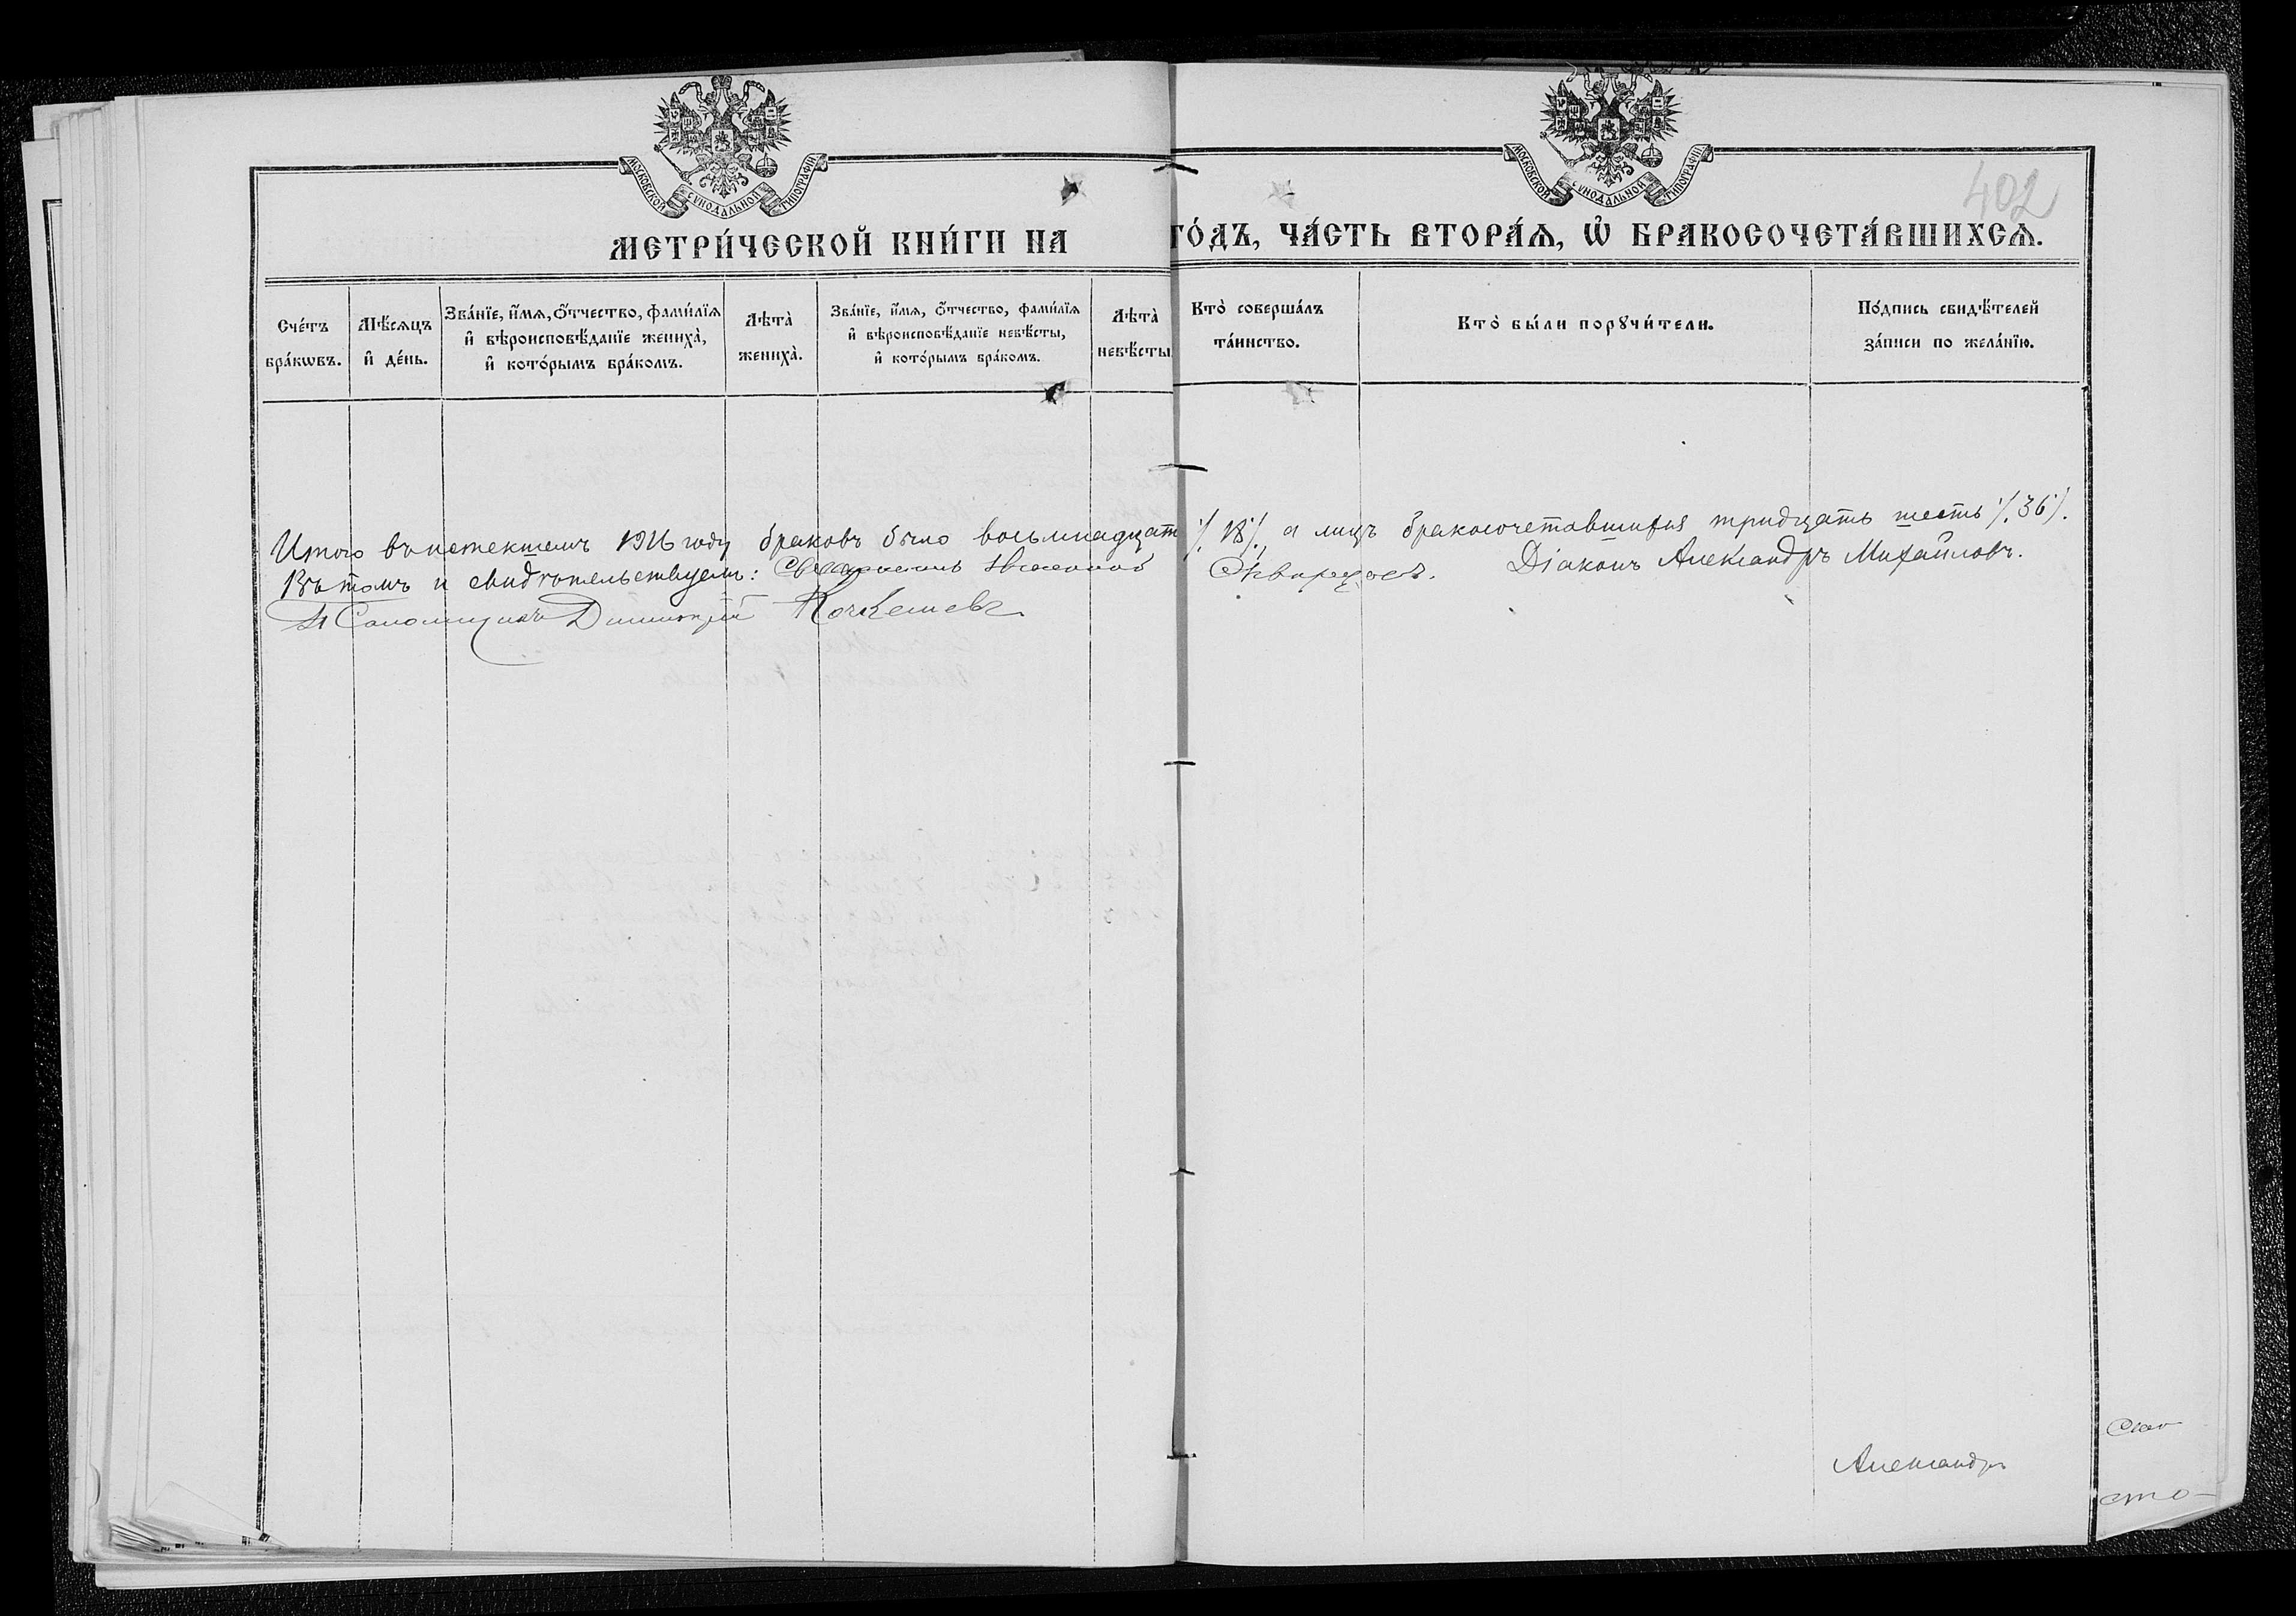 МОСКОВСКОЙ СѴНОДАЛЬНОЙ ТИПОГРАФІИ
МОСКОВСКОЙ СѴНОДАЛЬНОЙ ТИПОГРАФІИ
402
МЕТРИ́ЧЕСКОЙ КНИ́ГИ НА ГО́ДЪ, ЧА́СТЬ ВТОРА́Ѧ, Ѡ҆ БРАКОСОЧЕТА́ВШИХСѦ.
Сче́тъ бра́кѡвъ.
Мѣ́сѧцъ и҆ де́нь.
Зва́нїе, и҆́мѧ, ѻ҆́тчество, фами́лїѧ и҆ вѣроисповѣ́данїе жениха̀, и҆ кото́рымъ бра́комъ.
Лѣта̀ жениха̀.
Зва́нїе, и҆́мѧ, ѻ҆́тчество, фами́лїѧ и҆ вѣроисповѣ́данїе невѣ́сты, и҆ кото́рымъ бра́комъ.
Лѣта̀ невѣ́сты
Кто̀ соверша́лъ та́инство.
Кто̀ бы́ли порꙋчи́тели.
По́дпись свидѣ́телей за́писи по жела́нїю.
Итого въ истекшемъ 1916 году браковъ было восьмнадцать ./. 18 ./., а лицъ бракосочетавшихся тридцать шесть ./. 36 ./.
Въ томъ и свидѣтельствуемъ: Священникъ Скворцовъ. Діаконъ Александръ Михайловъ.
Псаломщикъ Димитрій
Александръ
сто-